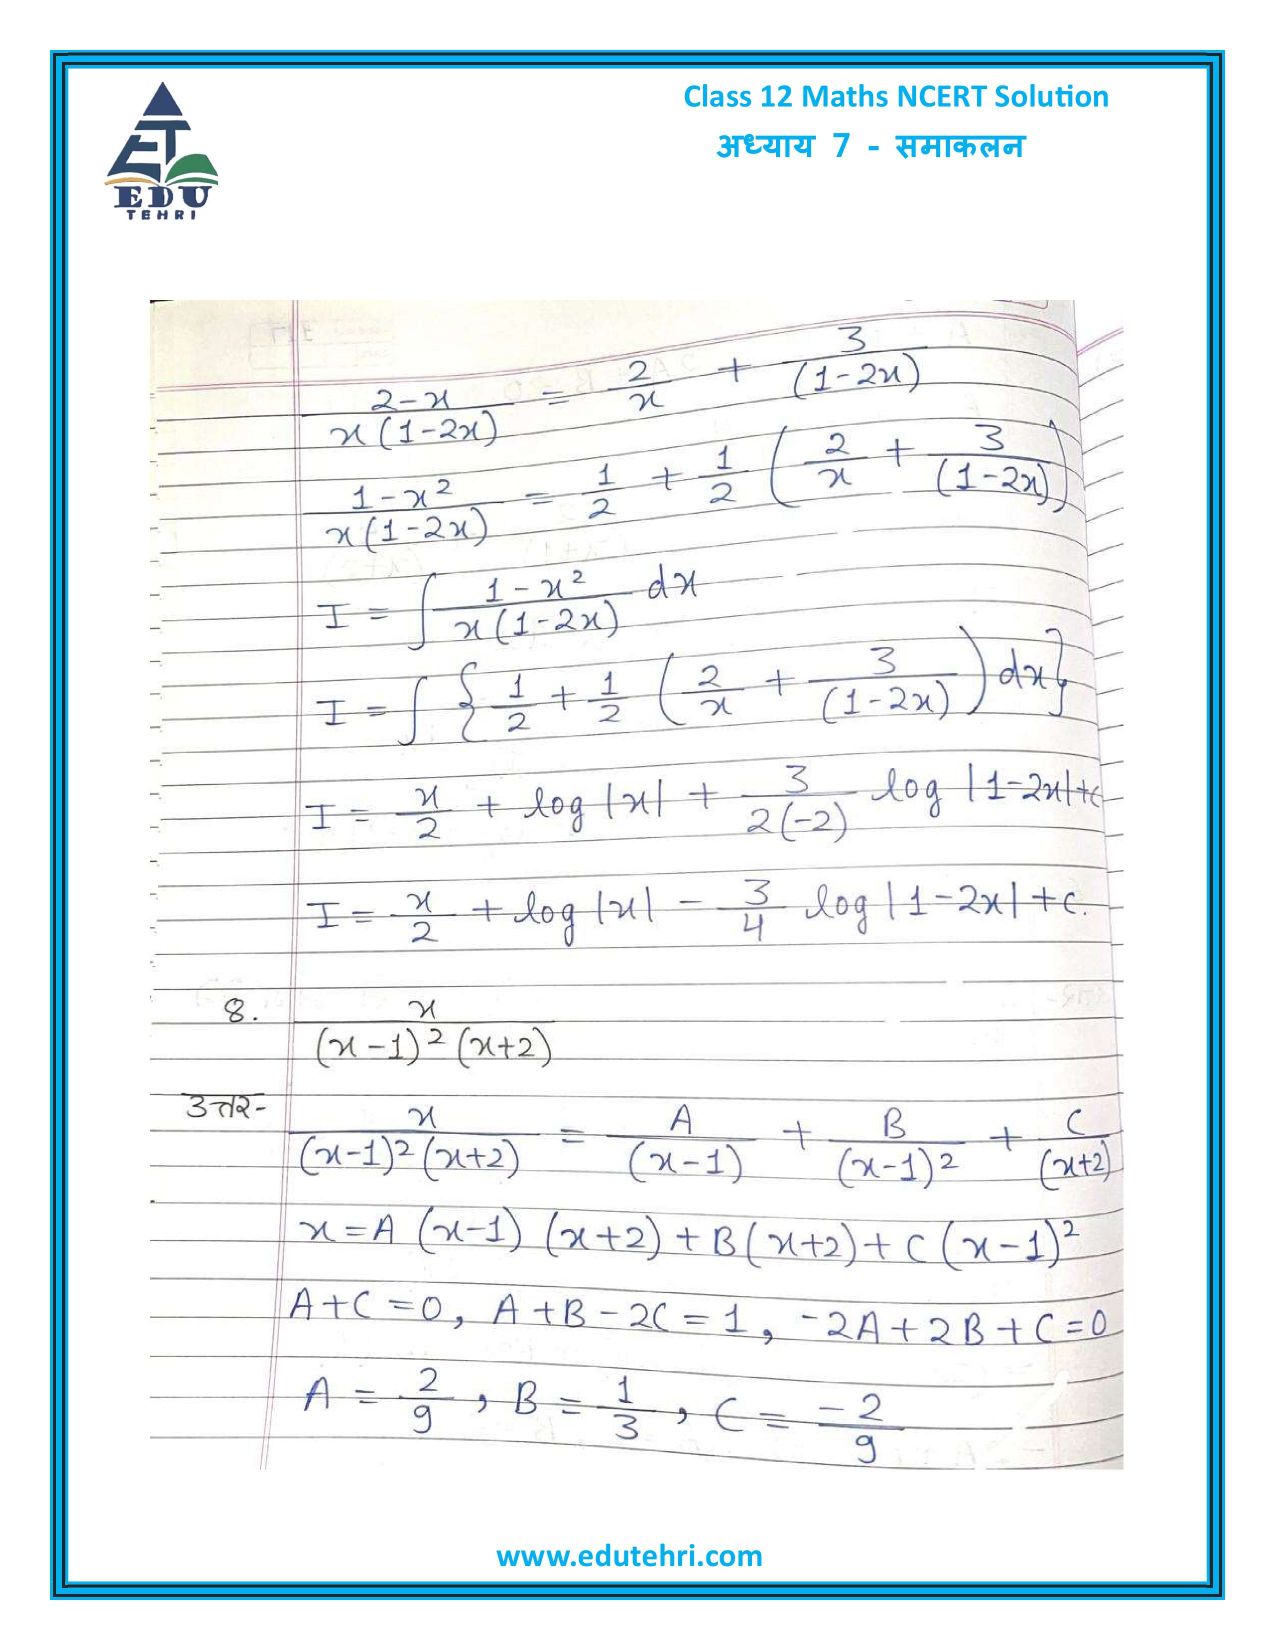 Class 12 Maths NCERT Solution
अध्याय 7 - समाकलन
EDU
TEHRI
2-x / x(1-2x) = 2/x + 3/(1-2x)
1-x² / x(1-2x) = 1/2 + 1/2 (2/x + 3/(1-2x))
I = ∫ 1-x² / x(1-2x) dx
I = ∫ {1/2 + 1/2 (2/x + 3/(1-2x)) dx}
I = x/2 + log|x| + 3/2(-2) log|1-2x|+c
I = x/2 + log|x| - 3/4 log|1-2x|+c.
8. x / (x-1)² (x+2)
उत्तर- x / (x-1)² (x+2) = A/(x-1) + B/(x-1)² + C/(x+2)
x = A (x-1) (x+2) + B(x+2) + C (x-1)²
A+C=0, A+B-2C=1, -2A+2B+C=0
A = 2/9, B = 1/3, C = -2/9
www.edutehri.com